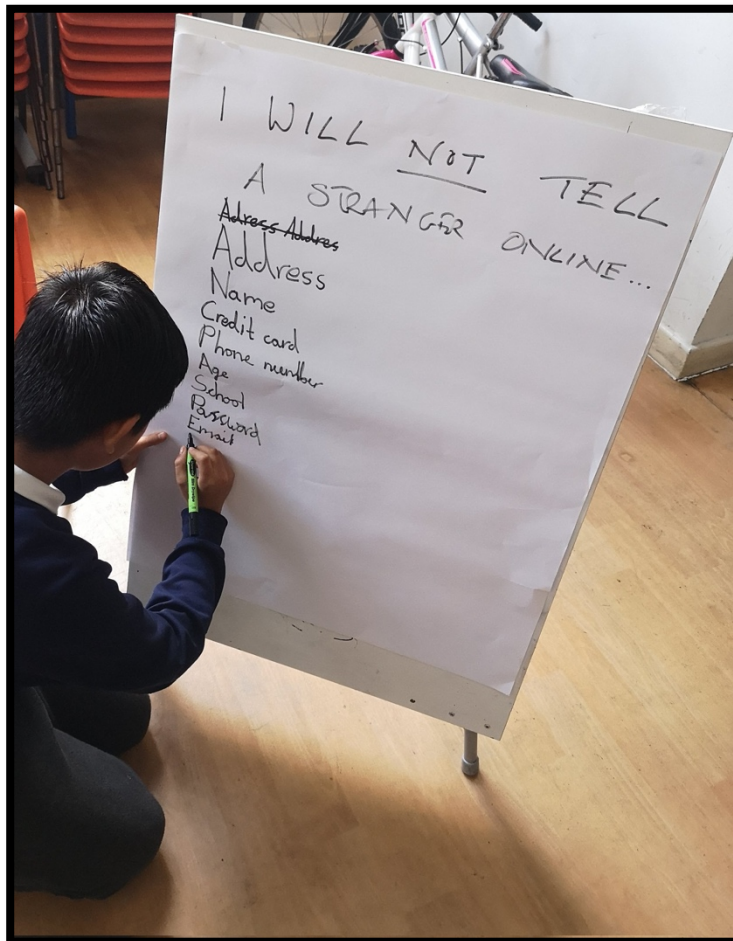 I WILL NOT TELL
A STRANGER ONLINE...
Adress Addres
Address
Name
Credit card
Phone number
Age
School
Password
Email